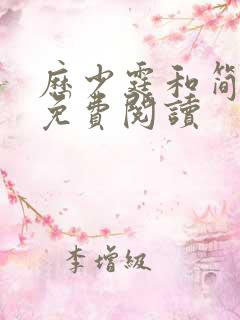 历少霆和简
免費閱讀
李增級